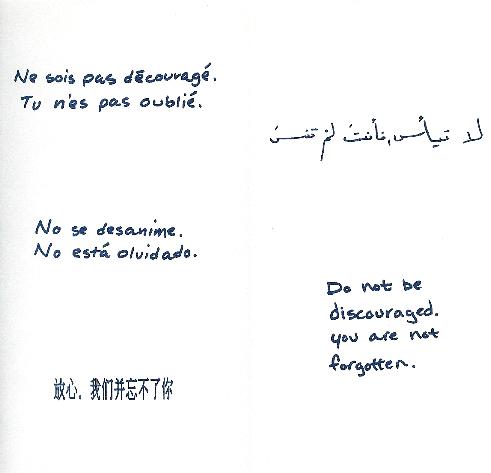 Ne sois pas découragé.
Tu n'es pas oublié.
لا تيأس، فأنت لم تنسَ
No se desanime.
No está olvidado.
Do not be
discouraged.
you are not
forgotten.
放心，我们并忘不了你